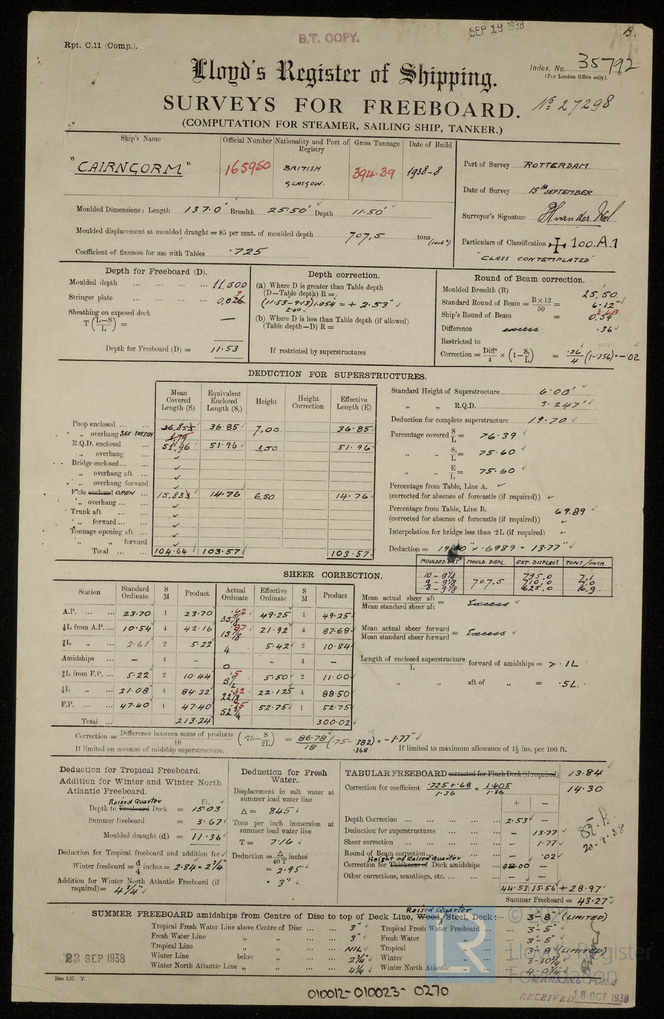 B.T. COPY.
SEP 19 1938
Rpt. C.11 (Comp.).
Index. No. 35792
(For London Office only).
Lloyd's Register of Shipping.
SURVEYS FOR FREEBOARD. No 27298
(COMPUTATION FOR STEAMER, SAILING SHIP, TANKER.)
Ship's Name Official Number Nationality and Port of Registry Gross Tonnage Date of Build
"CAIRNGORM" 165950 BRITISH GLASGOW. 394.39 1938-8
Port of Survey ROTTERDAM
Date of Survey 15th SEPTEMBER
Surveyor's Signature
Particulars of Classification +100.A.1
"CLASS CONTEMPLATED"
Moulded Dimensions: Length 137.0' Breadth 25.50' Depth 11.50'
Moulded displacement at moulded draught = 85 per cent. of moulded depth 707.5 tons
Coefficient of fineness for use with Tables .725
Depth for Freeboard (D).
Moulded depth 11,500
Stringer plate
Sheathing on exposed deck
T (L-S/L) = —
Depth for Freeboard (D) = 11.53
Depth correction.
(a) Where D is greater than Table depth
(D—Table depth) R =
(11.53-9.13)1.054 = + 2.53"
(b) Where D is less than Table depth (if allowed)
(Table depth—D) R =
If restricted by superstructures
Round of Beam correction.
Moulded Breadth (B) 25,50
Standard Round of Beam = B × 12 / 50 = 6.12
Ship's Round of Beam =
Difference excess .36
Restricted to
Correction = Diff./4 × (1 - S₁/L) = .36/4 (1-.756) = -.02
DEDUCTION FOR SUPERSTRUCTURES.
Mean Covered Length (S) Equivalent Enclosed Length (S₁) Height Height Correction Effective Length (E)
Poop enclosed 36.85 7,00 36.85
„ overhang SEE SKETCH
R.Q.D. enclosed 51.96 51.96 3,50 51.96
„ overhang
Bridge enclosed
„ overhang aft
„ overhang forward
F'cle enclosed OPEN 15,833 14.76 6,50 14.76
„ overhang
Trunk aft
„ forward
Tonnage opening aft
„ „ forward
Total 104.64 103.57 103.57
Standard Height of Superstructure 6.00'
„ „ R.Q.D. 3.247'
Deduction for complete superstructure 19.70
Percentage covered S/L = 76.39
„ S₁/L = 75.60
„ E/L = 75.60
Percentage from Table, Line A.
(corrected for absence of forecastle (if required))
Percentage from Table, Line B. 69.89
(corrected for absence of forecastle (if required))
Interpolation for bridge less than ·2L (if required)
Deduction = × .6989 = 13.77"
MOULDED DFT MOULD. DISPL EXT. DISPLACT TONS/INCH.
10 - 9⅛ 795,0 7,1
9 - 9⅛ 707,5 710,0 7,0
8 - 9⅛ 625,0 6,9
SHEER CORRECTION.
Station Standard Ordinate S M Product Actual Ordinate Effective Ordinate S M Product
A.P. 23.70 1 23.70 49.25 1 49.25
⅙L from A.P. 10.54 4 42.16 21.92 4 87.68
⅓L „ 2.61 2 5.22 4 5.42 2 10.84
Amidships — 4 — 0 — 4 —
⅓L from F.P. 5.22 2 10.44 5½ 5.50 2 11.00
⅙L „ 21.08 4 84.32 22⅛ 22.125 4 88.50
F.P. 47.40 1 47.40 52¾ 52.75 1 52.75
Total 213.24 300.02
Mean actual sheer aft / Mean standard sheer aft = Excess
Mean actual sheer forward / Mean standard sheer forward = Excess
Length of enclosed superstructure / L forward of amidships = >.1L
„ „ aft of „ = .5L
Correction = Difference between sums of products / 18 (·75 - S/2L) = 86.78/18 (.75-.382) = -1.77"
.368
If limited on account of midship superstructure.
If limited to maximum allowance of 1½ ins. per 100 ft.
Deduction for Tropical Freeboard.
Addition for Winter and Winter North Atlantic Freeboard.
Raised Quarter Ft.
Depth to Freeboard Deck = 15.03
Summer freeboard = 3.67
Moulded draught (d) = 11.36
Deduction for Tropical freeboard and addition for
Winter freeboard = d/4 inches = 2.84 = 2¾"
Addition for Winter North Atlantic Freeboard (if required) = 4¾"
Deduction for Fresh Water.
Displacement in salt water at summer load water line
Δ = 845
Tons per inch immersion at summer load water line
T = 7.16
Deduction = Δ/40 T inches
= 2.95"
= 3"
TABULAR FREEBOARD corrected for Flush Deck (if required) 13.84
Correction for coefficient .725+.68/1.36 = 1.405/1.36 14.30
+ —
Depth Correction 2.53 —
Deduction for superstructures — 13.77
Sheer correction — 1.77
Round of Beam correction — .02
Height of Raised Quarter
Correction for Thickness of Deck amidships 42.00 —
Other corrections, scantlings, etc. — —
44.53 15.56 + 28.97
Summer Freeboard = 43.27"
Raised Quarter
SUMMER FREEBOARD amidships from Centre of Disc to top of Deck Line, Wood/Steel, Deck:— 3-8" (LIMITED)
Tropical Fresh Water Line above Centre of Disc 3"
Fresh Water Line „ „ 3"
Tropical Line „ „ NIL
Winter Line below „ 2¾"
Winter North Atlantic Line „ „ 4¾"
Tropical Fresh Water Freeboard 3-5"
Fresh Water „ 3-5"
Tropical „ (LIMITED)
Winter „ 3-10¾"
Winter North Atlantic „ 4-0¾"
23 SEP 1938
RECEIVED 18 OCT 1938
LR
Lloyd's Register
Foundation
010012-010023-0270